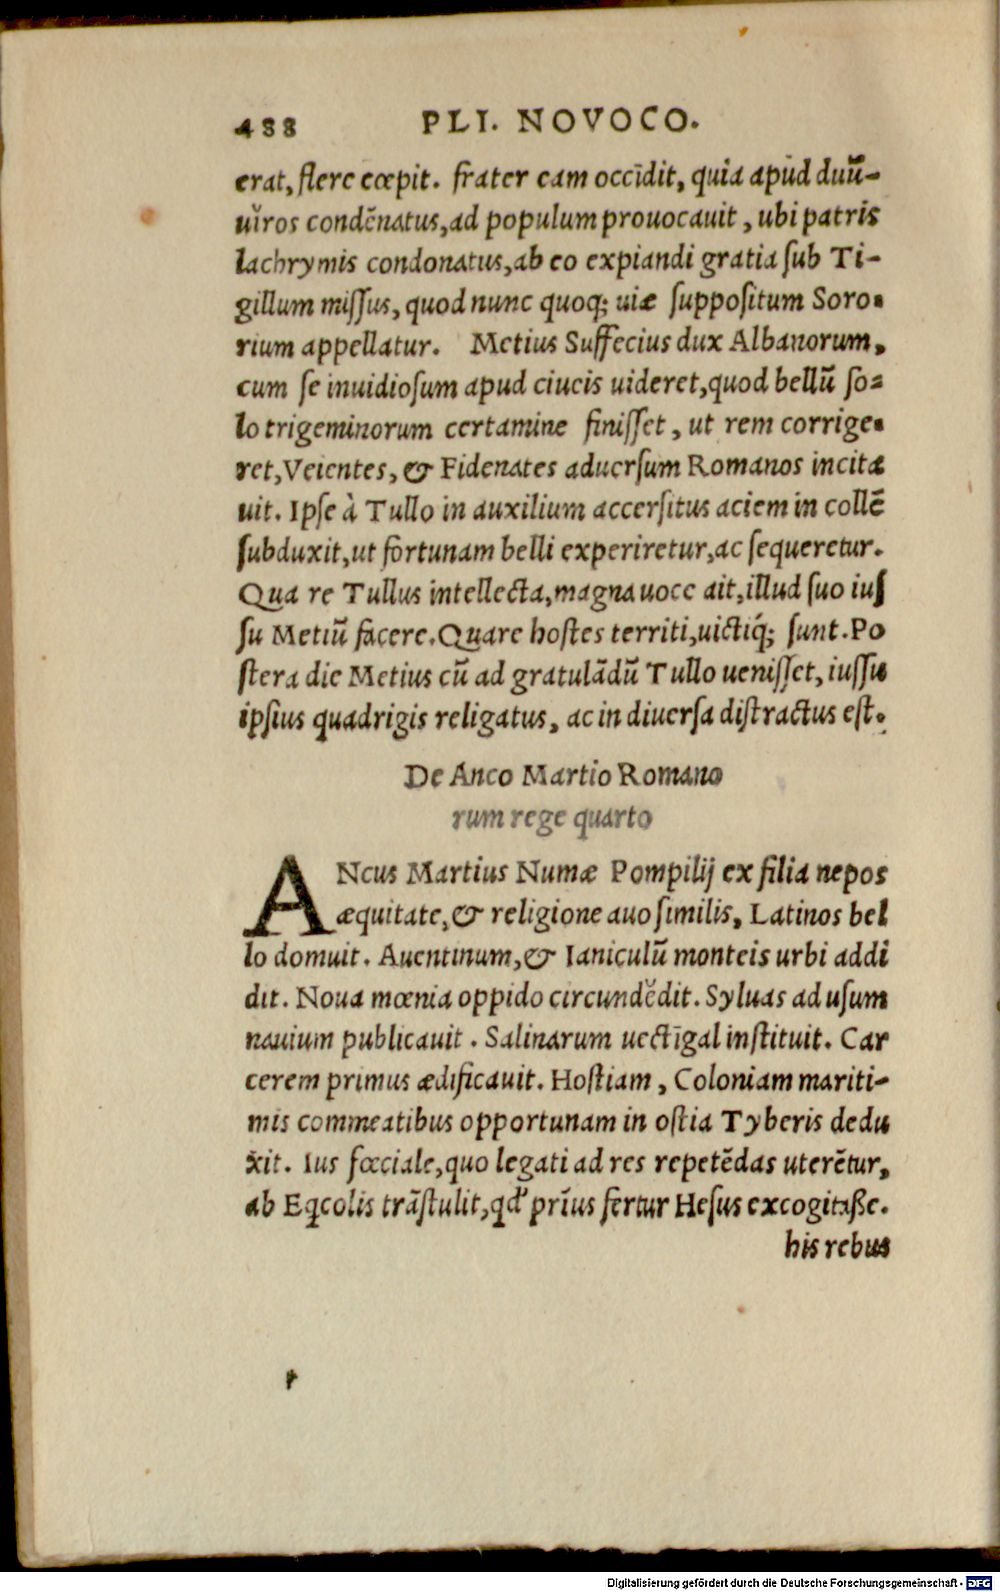 488 PLI. NOVOCO.
erat, flere cœpit. frater eam occīdit, quia apud duū-
uiros condēnatus, ad populum prouocauit, ubi patris
lachrymis condonatus, ab eo expiandi gratia sub Ti-
gillum missus, quod nunc quoq; uiæ suppositum Soro-
rium appellatur. Metius Suffecius dux Albanorum,
cum se inuidiosum apud ciueis uideret, quod bellū so-
lo trigeminorum certamine finisset, ut rem corrige-
ret, Veientes, & Fidenates aduersum Romanos incita
uit. Ipse à Tullo in auxilium accersitus aciem in collē
subduxit, ut fortunam belli experiretur, ac sequeretur.
Qua re Tullus intellecta, magna uoce ait, illud suo ius
su Metiū facere. Quare hostes territi, uictiq; sunt. Po
stera die Metius cū ad gratulādū Tullo uenisset, iussu
ipsius quadrigis religatus, ac in diuersa distractus est.
De Anco Martio Romano
rum rege quarto
ANcus Martius Numæ Pompilij ex filia nepos
æquitate, & religione auo similis, Latinos bel
lo domuit. Auentinum, & Ianiculū monteis urbi addi
dit. Noua mœnia oppido circundĕdit. Syluas ad usum
nauium publicauit. Salinarum uectīgal instituit. Car
cerem primus ædificauit. Hostiam, Coloniam mariti-
mis commeatibus opportunam in ostia Tyberis dedu
xit. Ius fœciale, quo legati ad res repetēdas uterētur,
ab Eqcolis trāstulit, qd' prīus fertur Hesus excogitaße.
his rebus
Digitalisierung gefördert durch die Deutsche Forschungsgemeinschaft - DFG